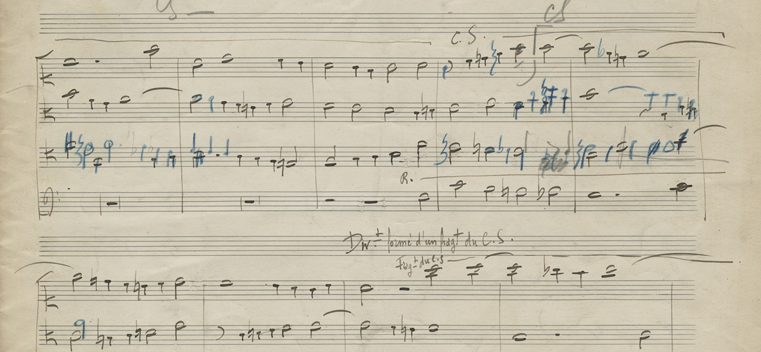 CS
C.S.
CS
R.
Div.t formé d'un fragt du C.S.
Fragt du C.S